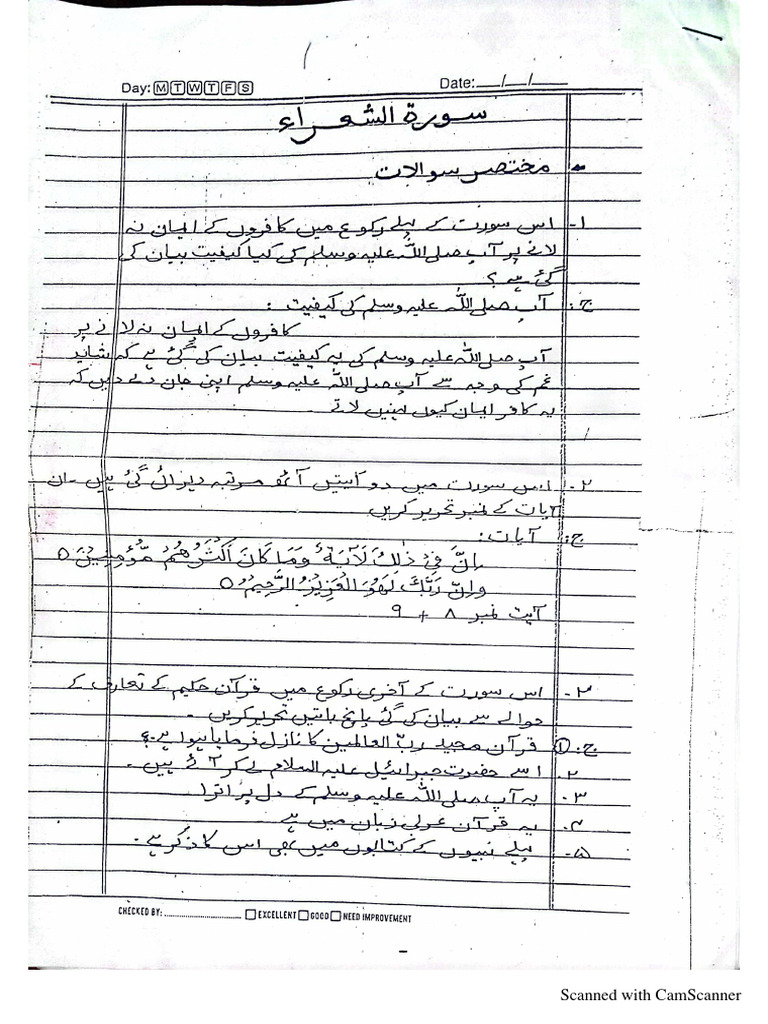 Day: M T W T F S
Date: __/__/__
سورة الشعراء
مختصر سوالات
۱- اس سورت کے پہلے رکوع میں کافروں کے ایمان نہ
لانے پر آپ صلی اللہ علیہ وسلم کی کیا کیفیت بیان کی
گئی ہے؟
ج: آپ صلی اللہ علیہ وسلم کی کیفیت :
کافروں کے ایمان نہ لانے پر
آپ صلی اللہ علیہ وسلم کی یہ کیفیت بیان کی گئی ہے کہ شاید
غم کی وجہ سے آپ صلی اللہ علیہ وسلم اپنی جان دے دیں کہ
یہ کافر ایمان کیوں نہیں لاتے
۲- اس سورت میں دو آیتیں آٹھ مرتبہ دہرائی گئی ہیں - ان
آیات کے نمبر تحریر کریں
ج: آیات :
اِنَّ فِیْ ذٰلِكَ لَاٰیَةً ؕ وَمَا كَانَ اَكْثَرُهُمْ مُّؤْمِنِیْنَ ٥
وَاِنَّ رَبَّكَ لَهُوَ الْعَزِیْزُ الرَّحِیْمُ ٥
آیت نمبر ۸ + ۹
۳- اس سورت کے آخری رکوع میں قرآن حکیم کے تعارف کے
حوالے سے بیان کی گئی پانچ باتیں تحریر کریں -
ج: ① قرآن مجید ربّ العالمین کا نازل فرمایا ہوا ہے-
۲- اسے حضرت جبرائیل علیہ السلام لے کر آئے ہیں -
۳- یہ آپ صلی اللہ علیہ وسلم کے دل پر اترا
۴- یہ قرآن عربی زبان میں ہے
۵- پہلے نبیوں کے کتابوں میں بھی اس کا ذکر ہے -
CHECKED BY: ........................ EXCELLENT GOOD NEED IMPROVEMENT
Scanned with CamScanner